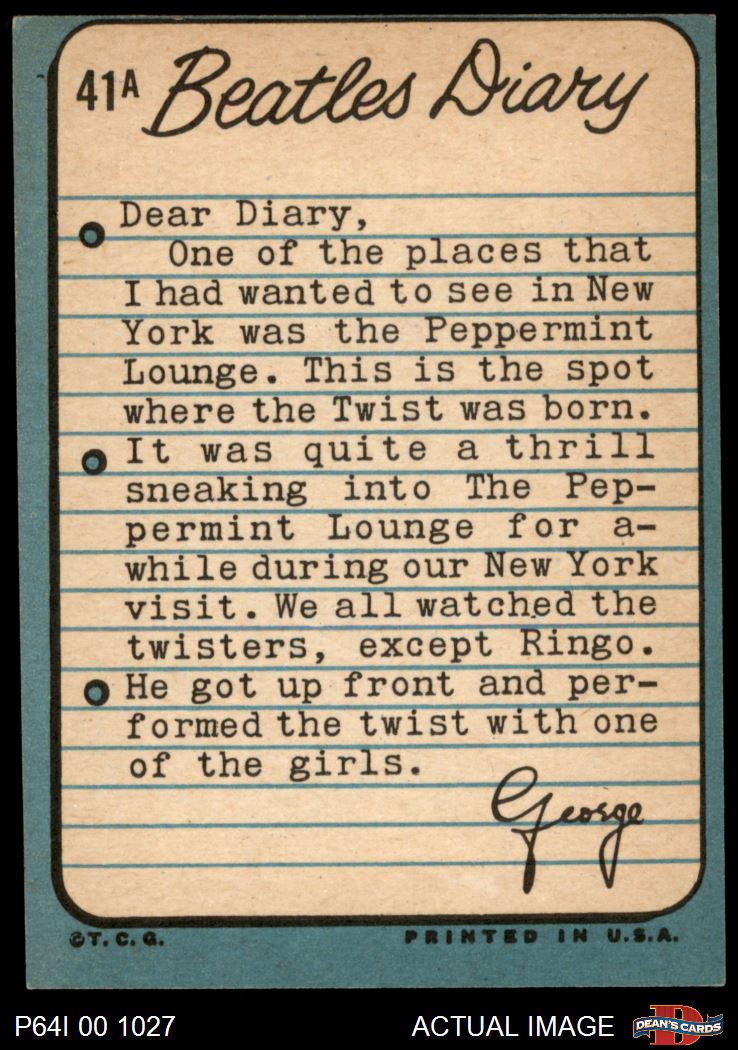 41A Beatles Diary
Dear Diary,
One of the places that
I had wanted to see in New
York was the Peppermint
Lounge. This is the spot
where the Twist was born.
It was quite a thrill
sneaking into The Pep-
permint Lounge for a-
while during our New York
visit. We all watched the
twisters, except Ringo.
He got up front and per-
formed the twist with one
of the girls.
George
©T.C.G. PRINTED IN U.S.A.
P64I 00 1027 ACTUAL IMAGE D DEAN'S CARDS